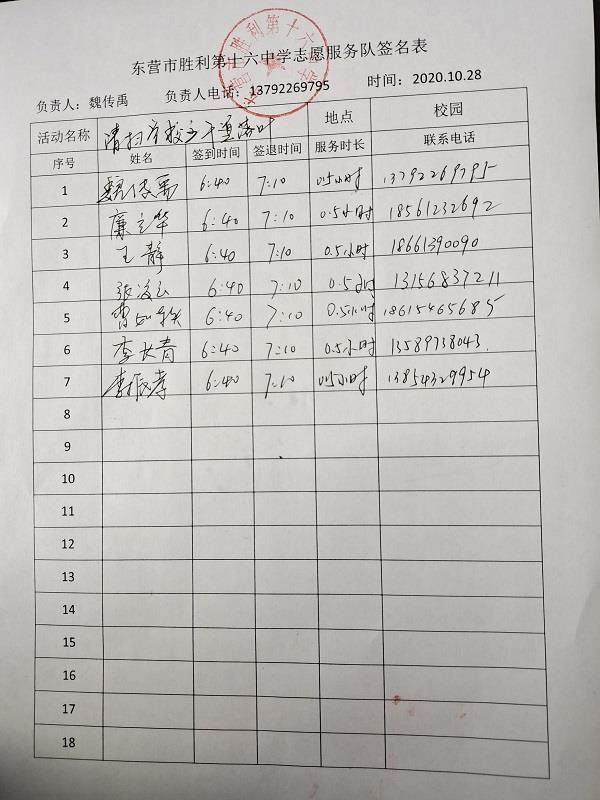 东营市胜利第十六中学志愿服务队签名表
负责人：魏传禹 负责人电话：13792269795 时间：2020.10.28
活动名称 清扫学校主干道落叶 地点 校园
序号 姓名 签到时间 签退时间 服务时长 联系电话
1 魏传禹 6:40 7:10 0.5小时 13792269795
2 廉立华 6:40 7:10 0.5小时 18561232692
3 王静 6:40 7:10 0.5小时 18661390090
4 张 6:40 7:10 0.5小时 13156837211
5 曹 6:40 7:10 0.5小时 18615465685
6 李长青 6:40 7:10 0.5小时 13589738043
7 李振孝 6:40 7:10 0.5小时 13854329954
8
9
10
11
12
13
14
15
16
17
18